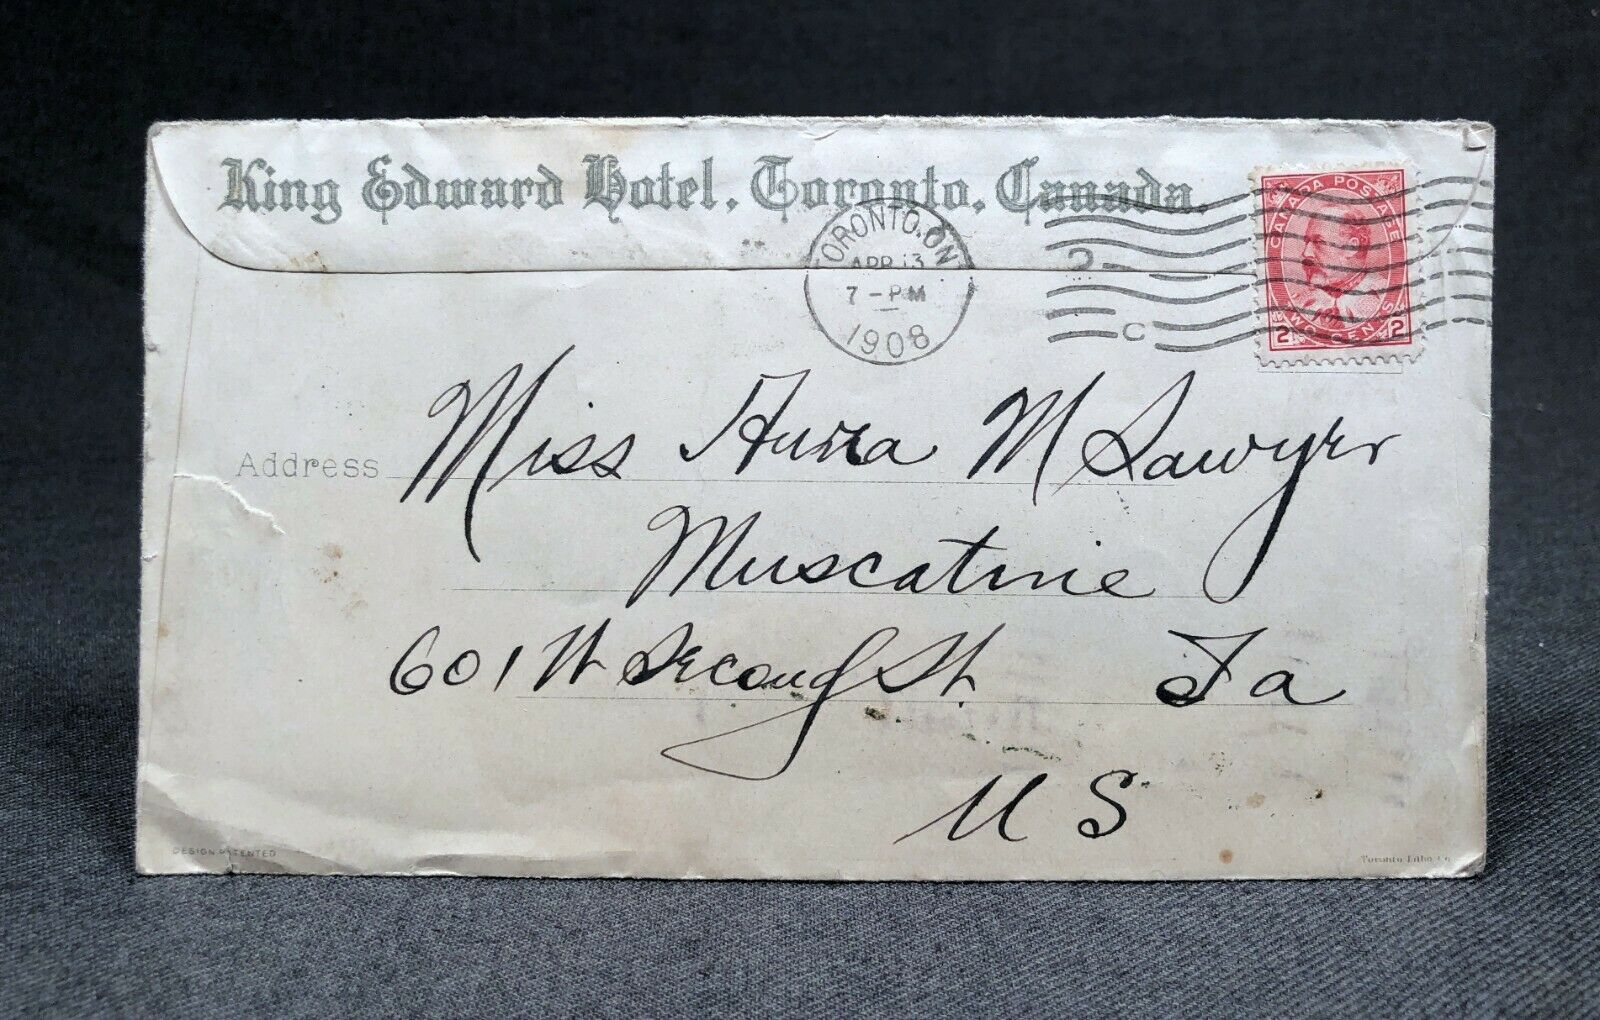 King Edward Hotel, Toronto, Canada.
TORONTO, ONT
APR 13
7 - PM
1908
C
CANADA POSTAGE
2 TWO CENTS 2
Address Miss M Sawyer
Muscatine
601 W Second St. Ia
U S
DESIGN PATENTED
Toronto Litho. Co